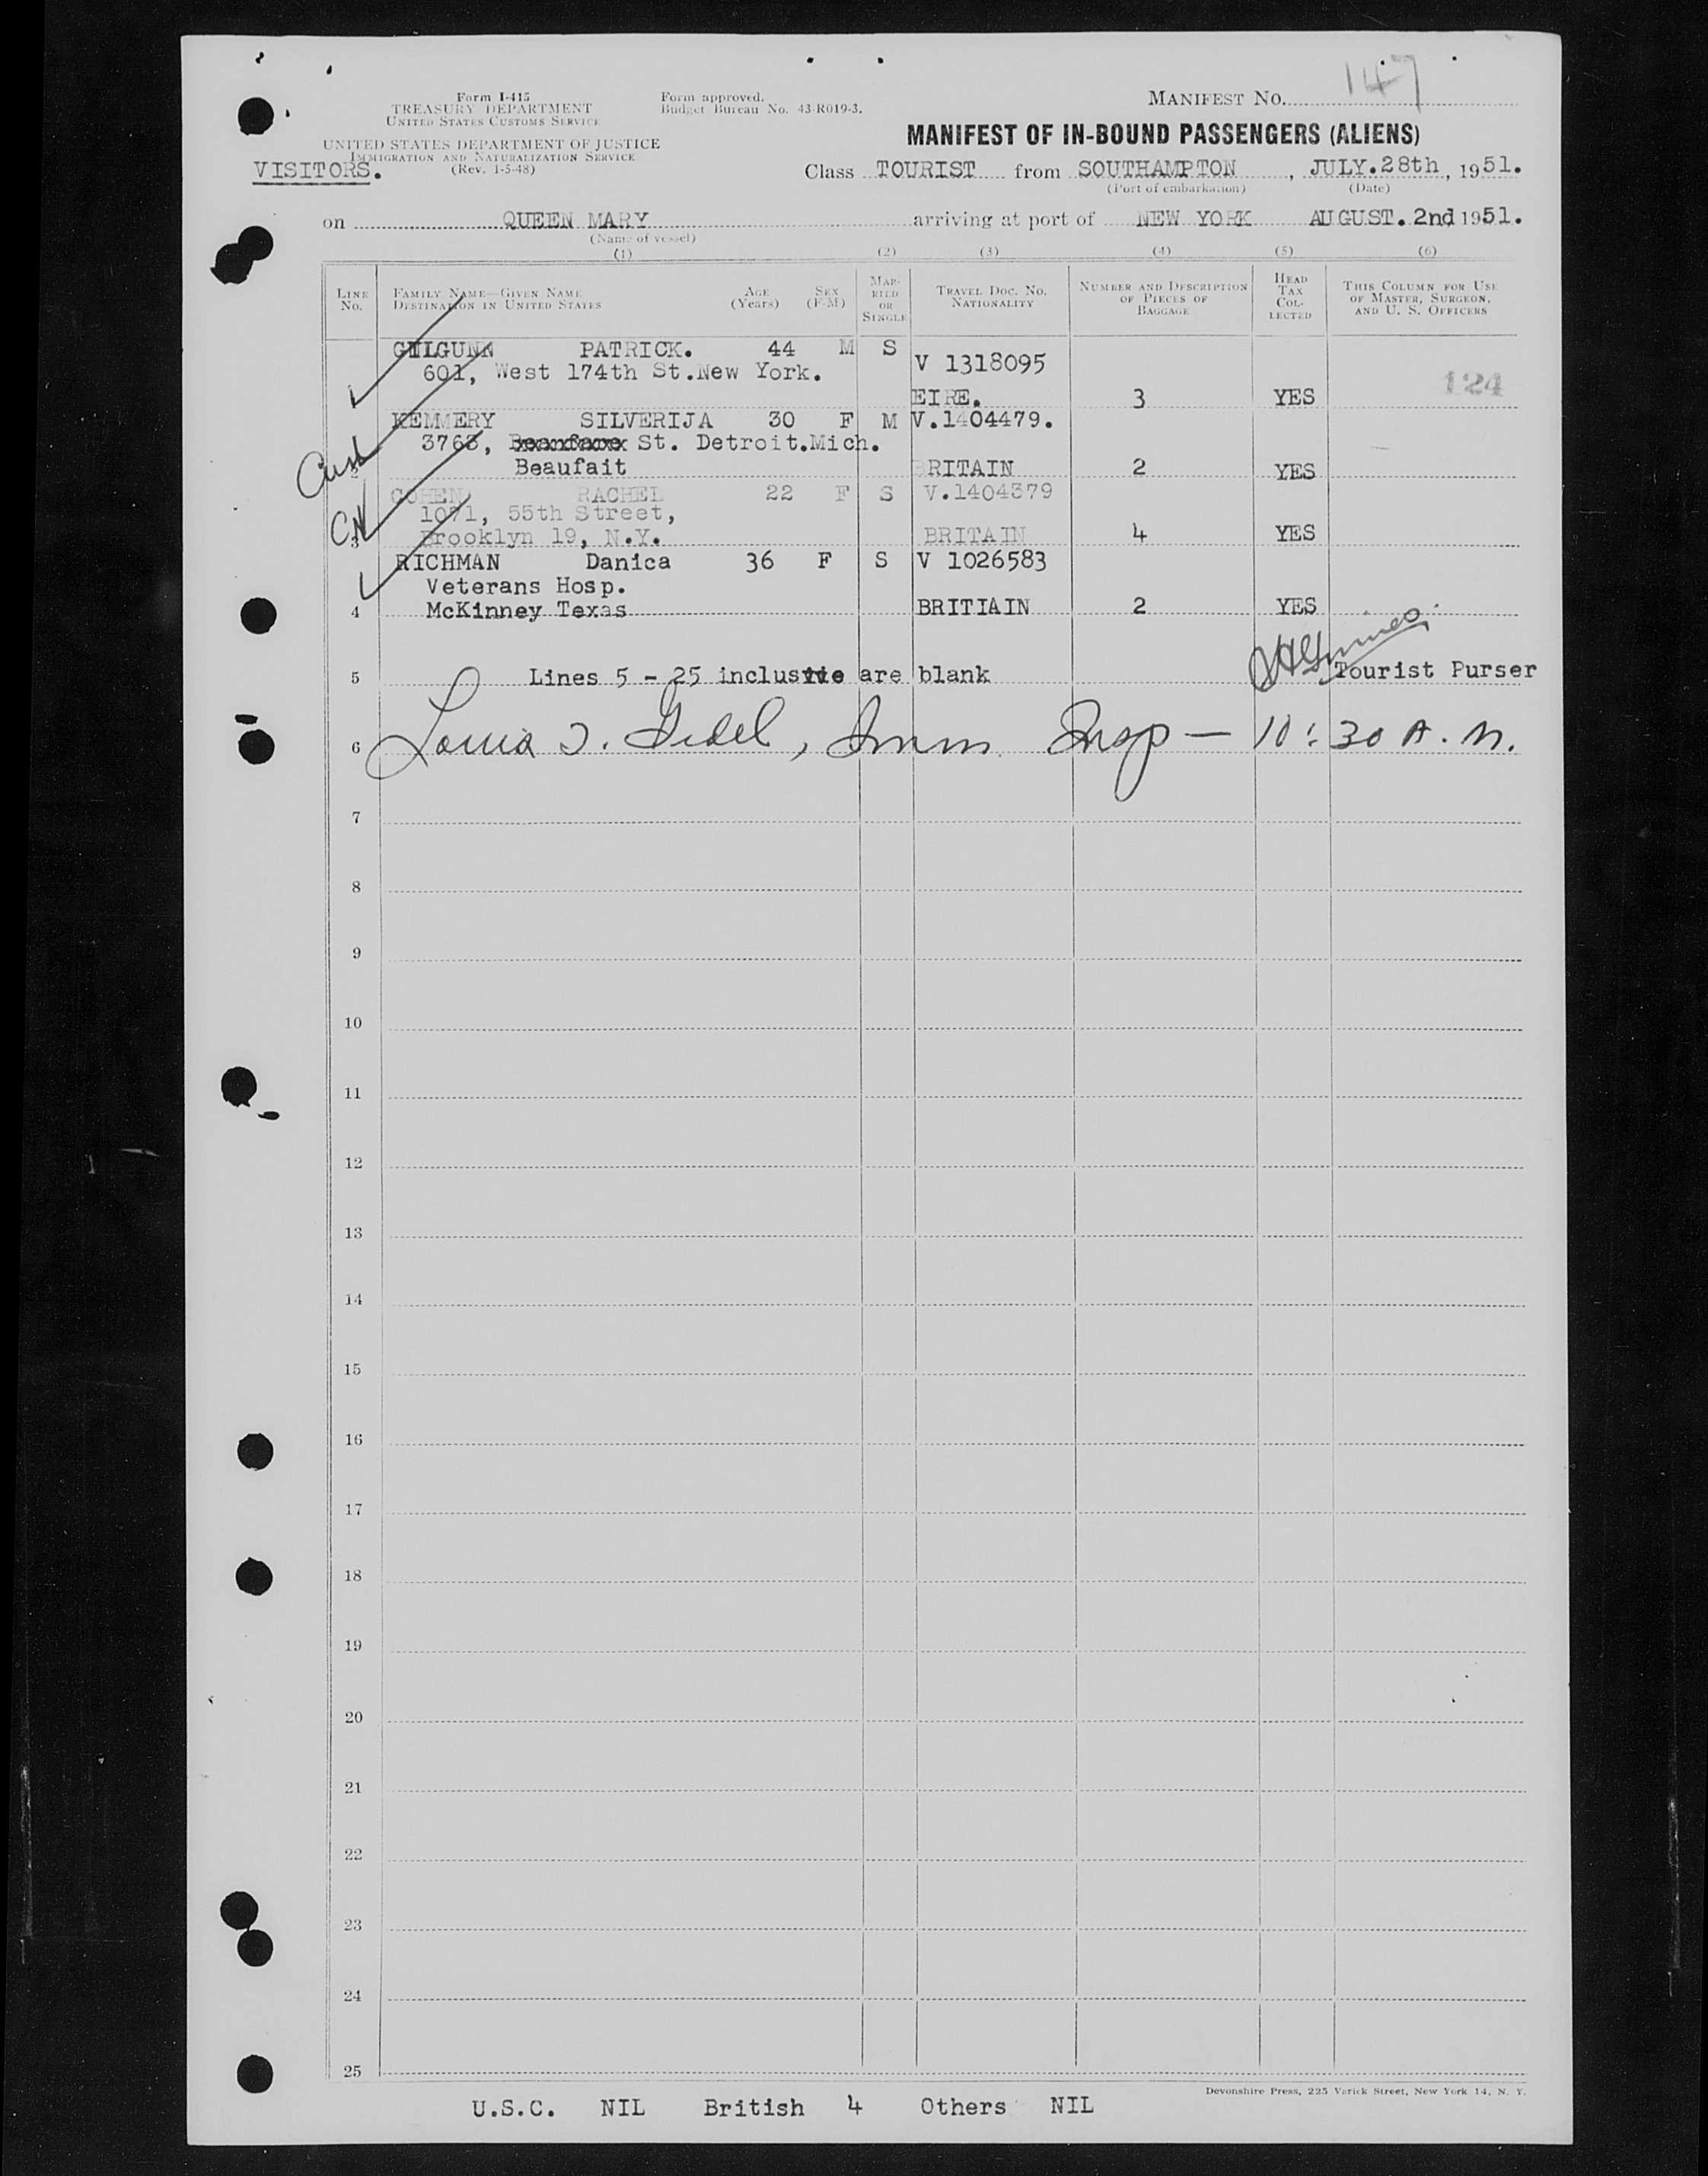 147
Form I-415
TREASURY DEPARTMENT
UNITED STATES CUSTOMS SERVICE
Form approved.
Budget Bureau No. 43-R019-3.
MANIFEST NO.
UNITED STATES DEPARTMENT OF JUSTICE
IMMIGRATION AND NATURALIZATION SERVICE
(Rev. 1-5-48)
MANIFEST OF IN-BOUND PASSENGERS (ALIENS)
VISITORS.
Class TOURIST from SOUTHAMPTON, JULY.28th, 1951.
(Port of embarkation) (Date)
on QUEEN MARY arriving at port of NEW YORK AUGUST.2nd 1951.
(Name of vessel)
(1) (2) (3) (4) (5) (6)
LINE No. FAMILY NAME—GIVEN NAME DESTINATION IN UNITED STATES AGE (Years) SEX (F-M) MARRIED OR SINGLE TRAVEL DOC. NO. NATIONALITY NUMBER AND DESCRIPTION OF PIECES OF BAGGAGE HEAD TAX COLLECTED THIS COLUMN FOR USE OF MASTER, SURGEON, AND U. S. OFFICERS
GILGUNN PATRICK. 44 M S V 1318095
601, West 174th St.New York.
EIRE. 3 YES 124
KEMMERY SILVERIJA 30 F M V.1404479.
3763, St. Detroit.Mich.
Beaufait BRITAIN 2 YES
COHEN RACHEL 22 F S V.1404379
1071, 55th Street,
3 Brooklyn 19, N.Y. BRITAIN 4 YES
CN
RICHMAN Danica 36 F S V 1026583
Veterans Hosp.
4 McKinney Texas BRITIAIN 2 YES
5 Lines 5 - 25 inclusive are blank Tourist Purser
6 Imm Insp — 10:30 A.M.
7
8
9
10
11
12
13
14
15
16
17
18
19
20
21
22
23
24
25
Devonshire Press, 225 Varick Street, New York 14, N. Y.
U.S.C. NIL British 4 Others NIL